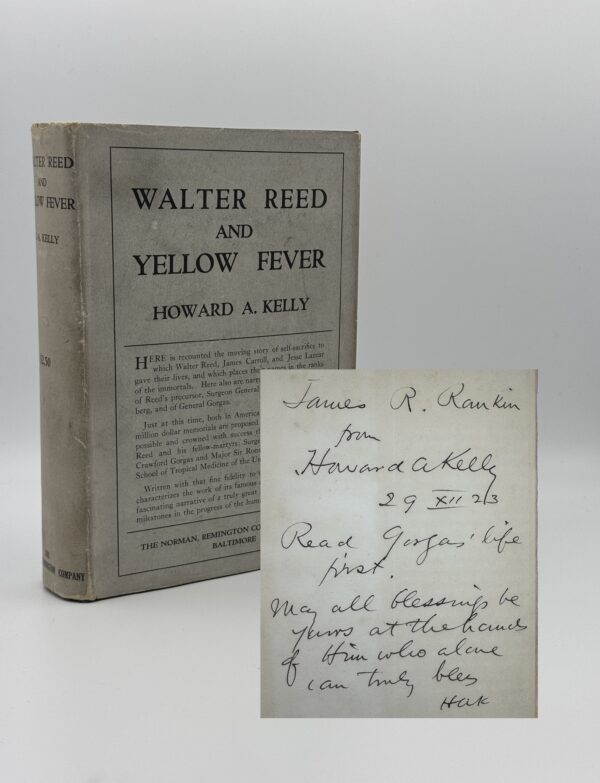 LTER REED
AND
OW FEVER
A. KELLY
2.50
COMPANY
WALTER REED
AND
YELLOW FEVER
HOWARD A. KELLY
HERE is recounted the moving story of self-sacrifice to
which Walter Reed, James Carroll, and Jesse Lazear
gave their lives, and which places their names in the ranks
of the immortals. Here also are nar
of Reed's precursor, Surgeon General
berg, and of General Gorgas.
Just at this time, both in America
million dollar memorials are proposed
possible and crowned with success t
Reed and his fellow-martyrs: Surge
Crawford Gorgas and Major Sir Ron
School of Tropical Medicine of the Un
Written with that fine fidelity to
characterizes the work of its famous
fascinating narrative of a truly great
milestones in the progress of the hum
THE NORMAN, REMINGTON CO
BALTIMORE
James R. Rankin
from
Howard A Kelly
29 XII 23
Read Gorgas' life
first.
May all blessings be
yours at the hands
of Him who alone
can truly bless
HAK